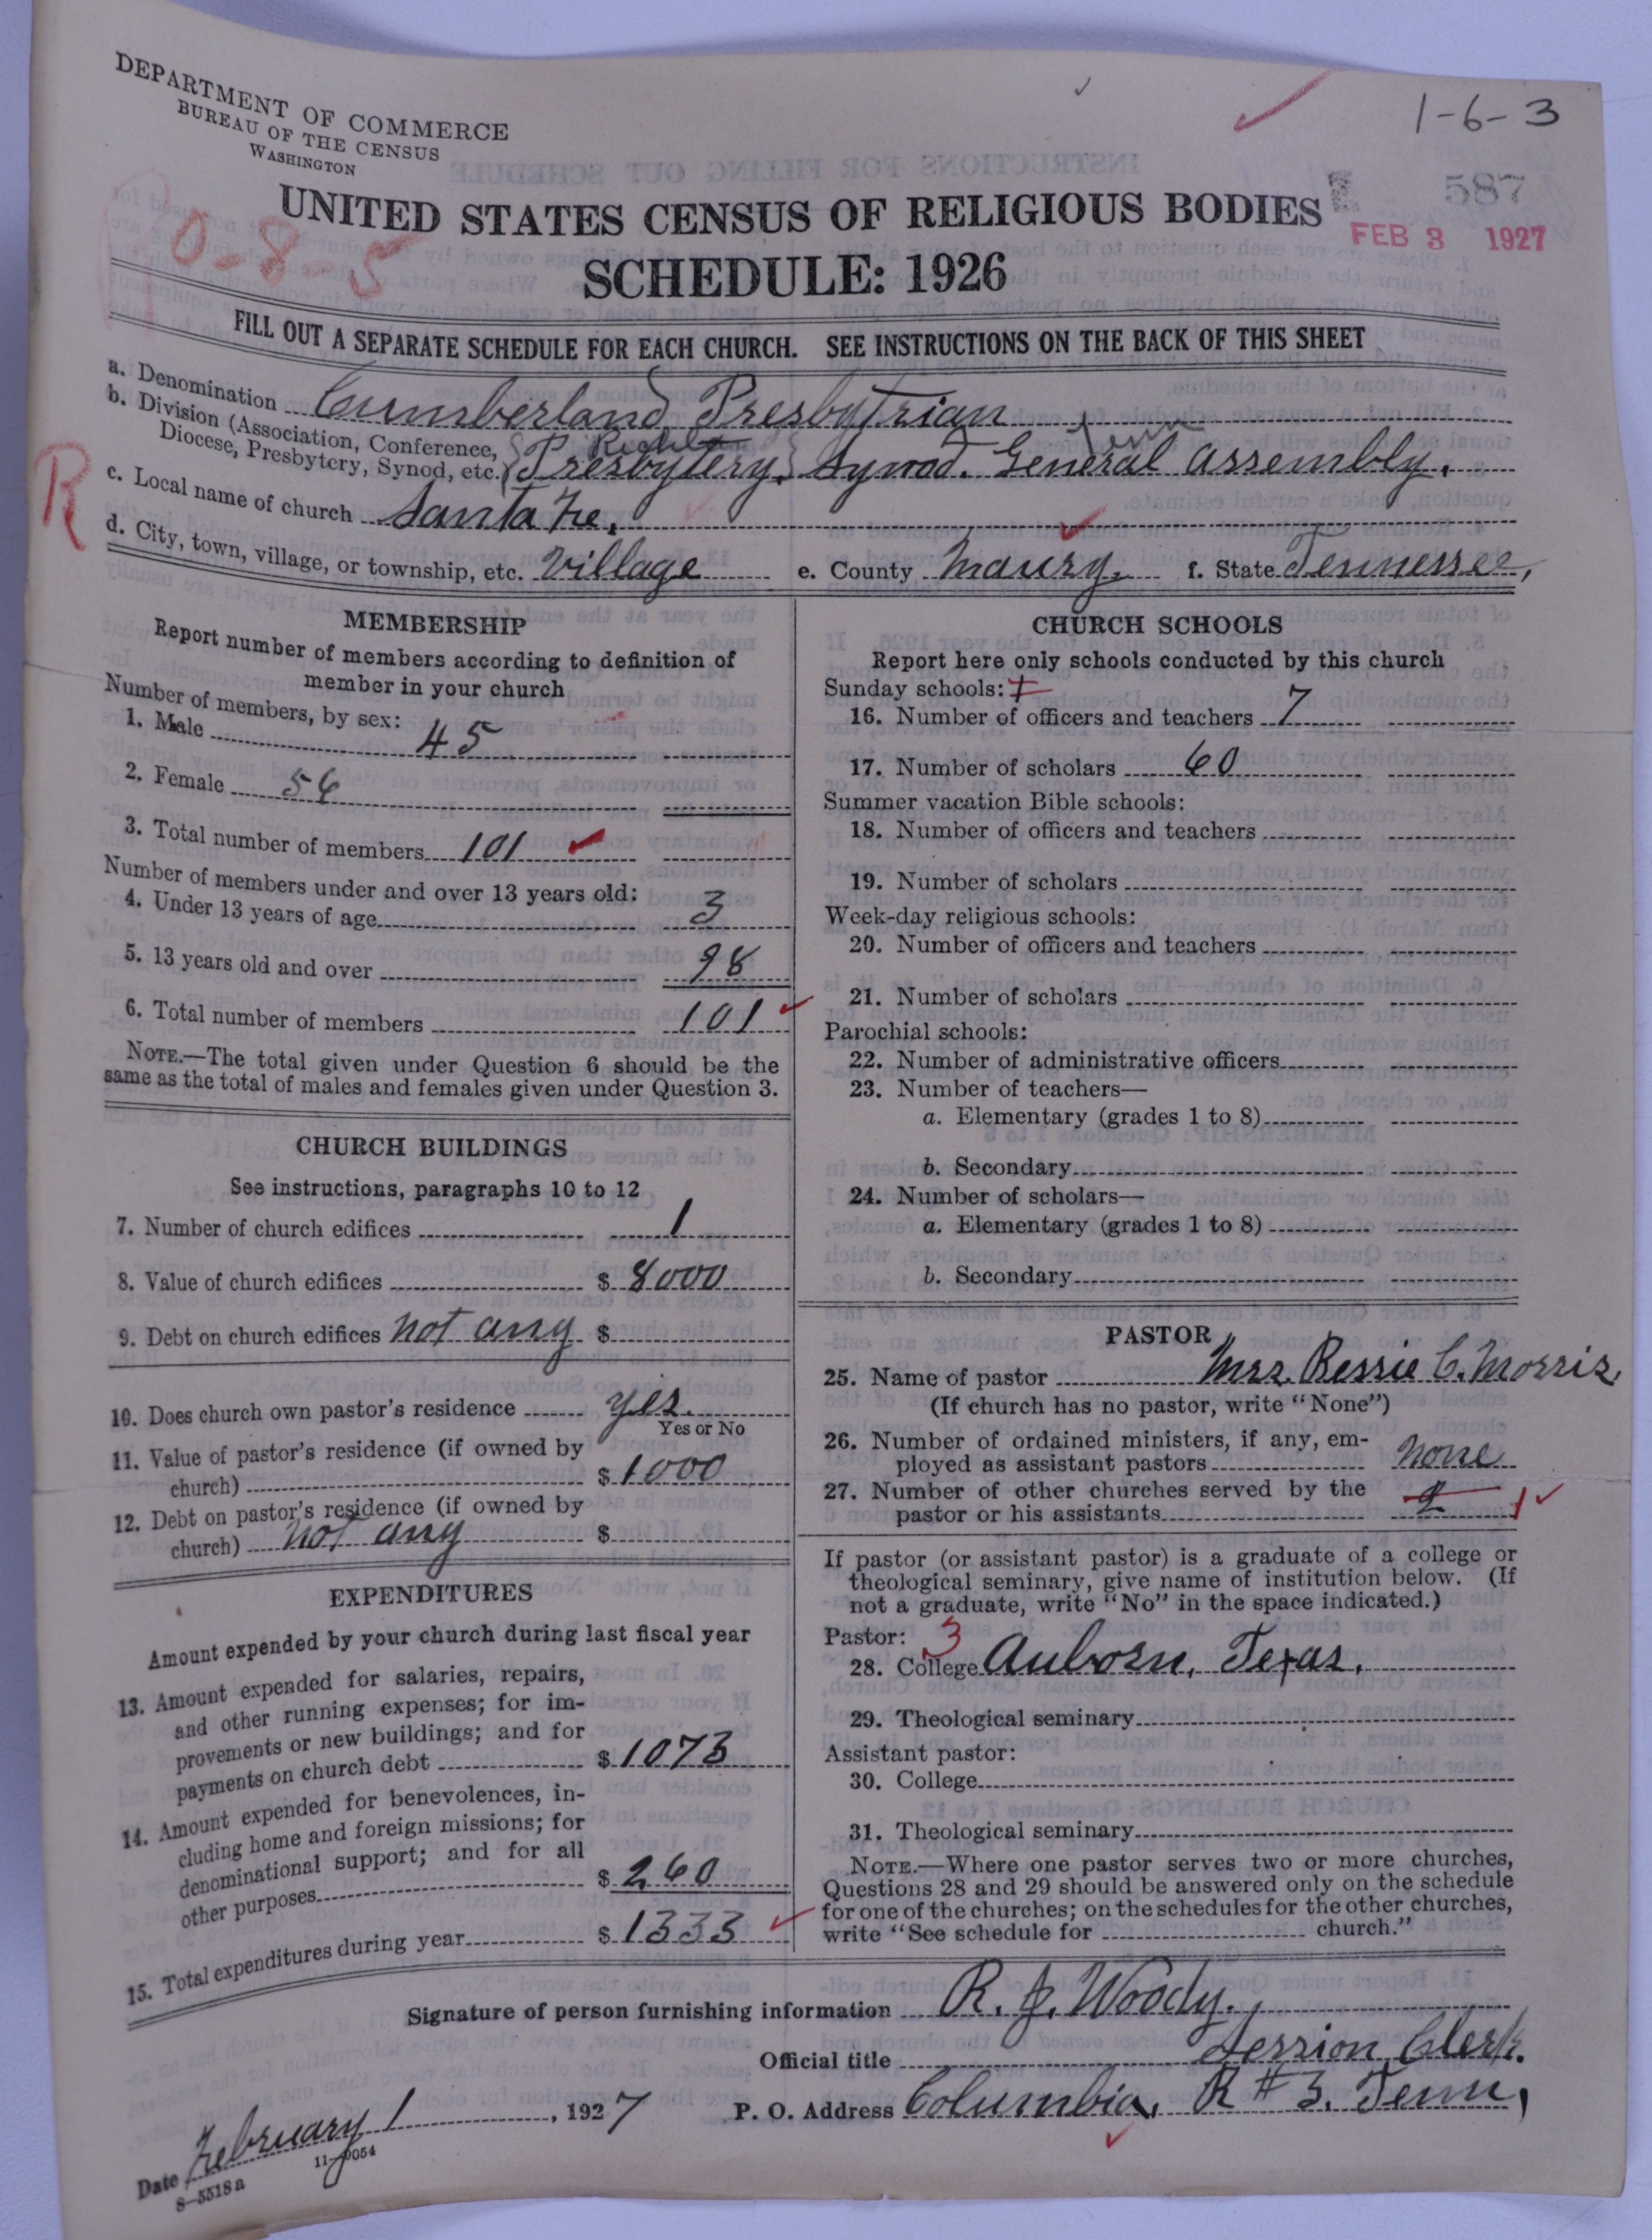 DEPARTMENT OF COMMERCE
BUREAU OF THE CENSUS
WASHINGTON
1-6-3
587
FEB 3 1927
0-8-5
UNITED STATES CENSUS OF RELIGIOUS BODIES
SCHEDULE: 1926
FILL OUT A SEPARATE SCHEDULE FOR EACH CHURCH. SEE INSTRUCTIONS ON THE BACK OF THIS SHEET
a. Denomination Cumberland Presbytrian
b. Division (Association, Conference,
Diocese, Presbytery, Synod, etc.) Presbytery. Synod. General Assembly.
Tenn
R
c. Local name of church Santa Fe,
d. City, town, village, or township, etc. Village e. County Maury. f. State Tennessee,
MEMBERSHIP
Report number of members according to definition of
member in your church
Number of members, by sex:
1. Male 45
2. Female 56
3. Total number of members 101
Number of members under and over 13 years old:
4. Under 13 years of age 3
5. 13 years old and over 98
6. Total number of members 101
NOTE.—The total given under Question 6 should be the
same as the total of males and females given under Question 3.
CHURCH BUILDINGS
See instructions, paragraphs 10 to 12
7. Number of church edifices 1
8. Value of church edifices $ 8000
9. Debt on church edifices not any $
10. Does church own pastor's residence yes.
Yes or No
11. Value of pastor's residence (if owned by
church) $ 1000
12. Debt on pastor's residence (if owned by
church) not any $
EXPENDITURES
Amount expended by your church during last fiscal year
13. Amount expended for salaries, repairs,
and other running expenses; for im-
provements or new buildings; and for
payments on church debt $ 1073
14. Amount expended for benevolences, in-
cluding home and foreign missions; for
denominational support; and for all
other purposes $ 260
15. Total expenditures during year $ 1333
CHURCH SCHOOLS
Report here only schools conducted by this church
Sunday schools:
16. Number of officers and teachers 7
17. Number of scholars 60
Summer vacation Bible schools:
18. Number of officers and teachers
19. Number of scholars
Week-day religious schools:
20. Number of officers and teachers
21. Number of scholars
Parochial schools:
22. Number of administrative officers
23. Number of teachers—
a. Elementary (grades 1 to 8)
b. Secondary
24. Number of scholars—
a. Elementary (grades 1 to 8)
b. Secondary
PASTOR
25. Name of pastor Mrs. Bessie C. Morris,
(If church has no pastor, write "None")
26. Number of ordained ministers, if any, em-
ployed as assistant pastors none
27. Number of other churches served by the
pastor or his assistants 1
If pastor (or assistant pastor) is a graduate of a college or
theological seminary, give name of institution below. (If
not a graduate, write "No" in the space indicated.)
Pastor: 3
28. College Auborn, Texas.
29. Theological seminary
Assistant pastor:
30. College
31. Theological seminary
NOTE.—Where one pastor serves two or more churches,
Questions 28 and 29 should be answered only on the schedule
for one of the churches; on the schedules for the other churches,
write "See schedule for church."
Signature of person furnishing information R. J. Woody.
Official title Session Clerk.
Date February 1, 1927 P. O. Address Columbia, R # 3. Tenn,
8-5518a 11-9054